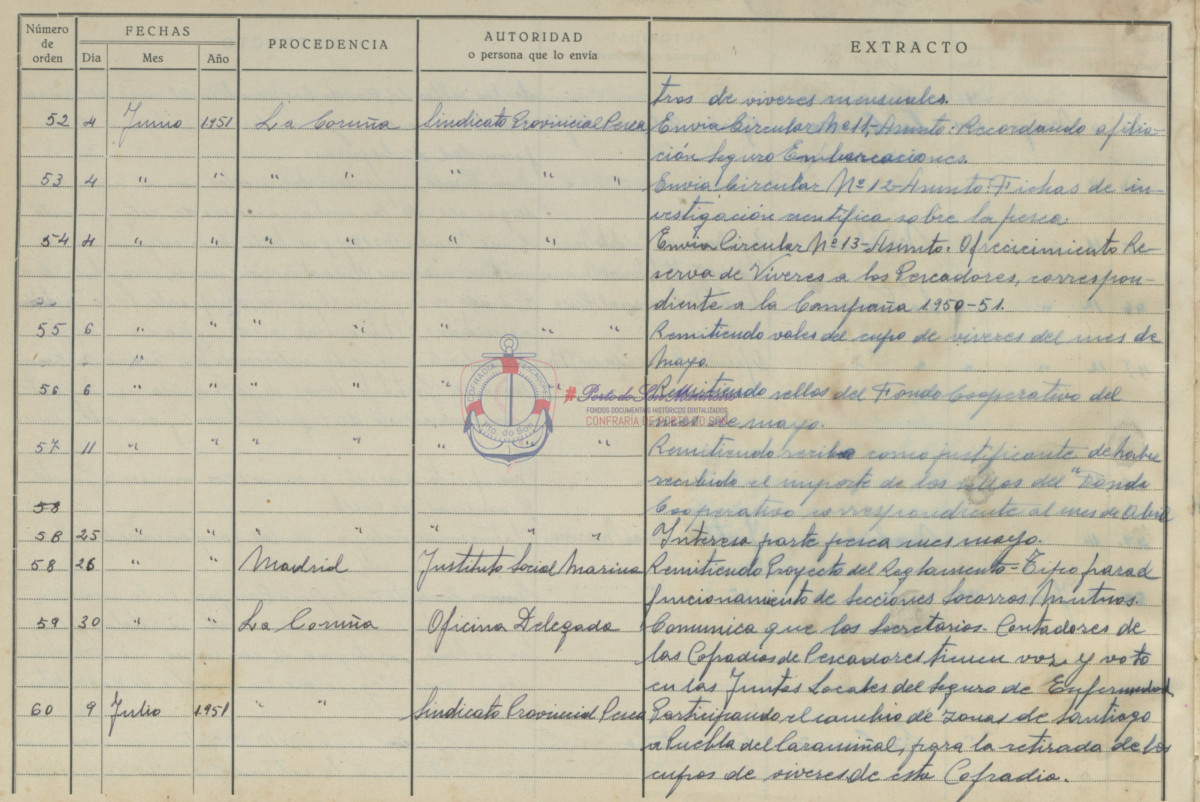 Número de orden FECHAS PROCEDENCIA AUTORIDAD o persona que lo envía EXTRACTO
Día Mes Año
tros de viveres mensuales.
52 4 Junio 1951 La Coruña Sindicato Provincial Pesca Envia Circular Nº 11,-Asunto: Recordando afilia-
ción Seguro Embarcaciones.
53 4 " " " " " " " Envia Circular Nº 12-Asunto: Fichas de in-
vestigación cientifica sobre la pesca.
54 4 " " " " " " Envia Circular Nº 13-Asunto. Ofrecicimiento Re-
serva de Viveres a los Pescadores, correspon-
diente a la Campaña 1950-51.
55 6 " " " " " " " Remitiendo vales del cupo de viveres del mes de
" Mayo.
56 6 " " " " " " Remitiendo sellos del Fondo Cooperativo del
mes de mayo.
57 11 " " " " " " " Remitiendo recibo como justificante de haber
recibido el importe de los sellos del "Fondo
58 Cooperativo correspondiente al mes de Abril
58 25 " " " " " " " Interesa parte pesca mes mayo.
58 26 " " Madrid Instituto Social Marina Remitiendo Proyecto del Reglamento-Tipo para
funcionamiento de Secciones Socorros Mutuos.
59 30 " " La Coruña Oficina Delegada Comunica que los Secretarios-Contadores de
las Cofradias de Pescadores tienen voz y voto
en las Juntas Locales del Seguro de Enfermedad
60 9 Julio 1951 " " Sindicato Provincial Pesca Participando el cambio de zonas de Santiago
a Puebla del Caramiñal, para la retirada de los
cupos de viveres de esta Cofradia.
COFRADIA PESCADORES
Pto. do Son
#Porto do Son
FONDOS DOCUMENTAIS HISTÓRICOS DIGITALIZADOS
CONFRARÍA DE PORTO DO SON